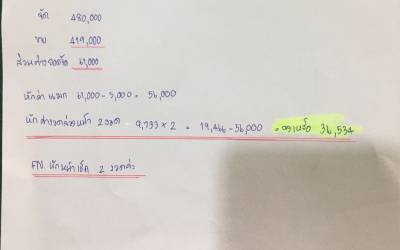 จัด 480,000
ขาย 419,000
ส่วนต่างยอดจัด 61,000
หักค่า 61,000 - 5,000 = 56,000
หักค่างวดล่วงหน้า 2 งวด 9,733 × 2 = 19,466 - 56,000 = คงเหลือ 36,534
FN. หักหน้าเช็ค 2 งวดค่ะ